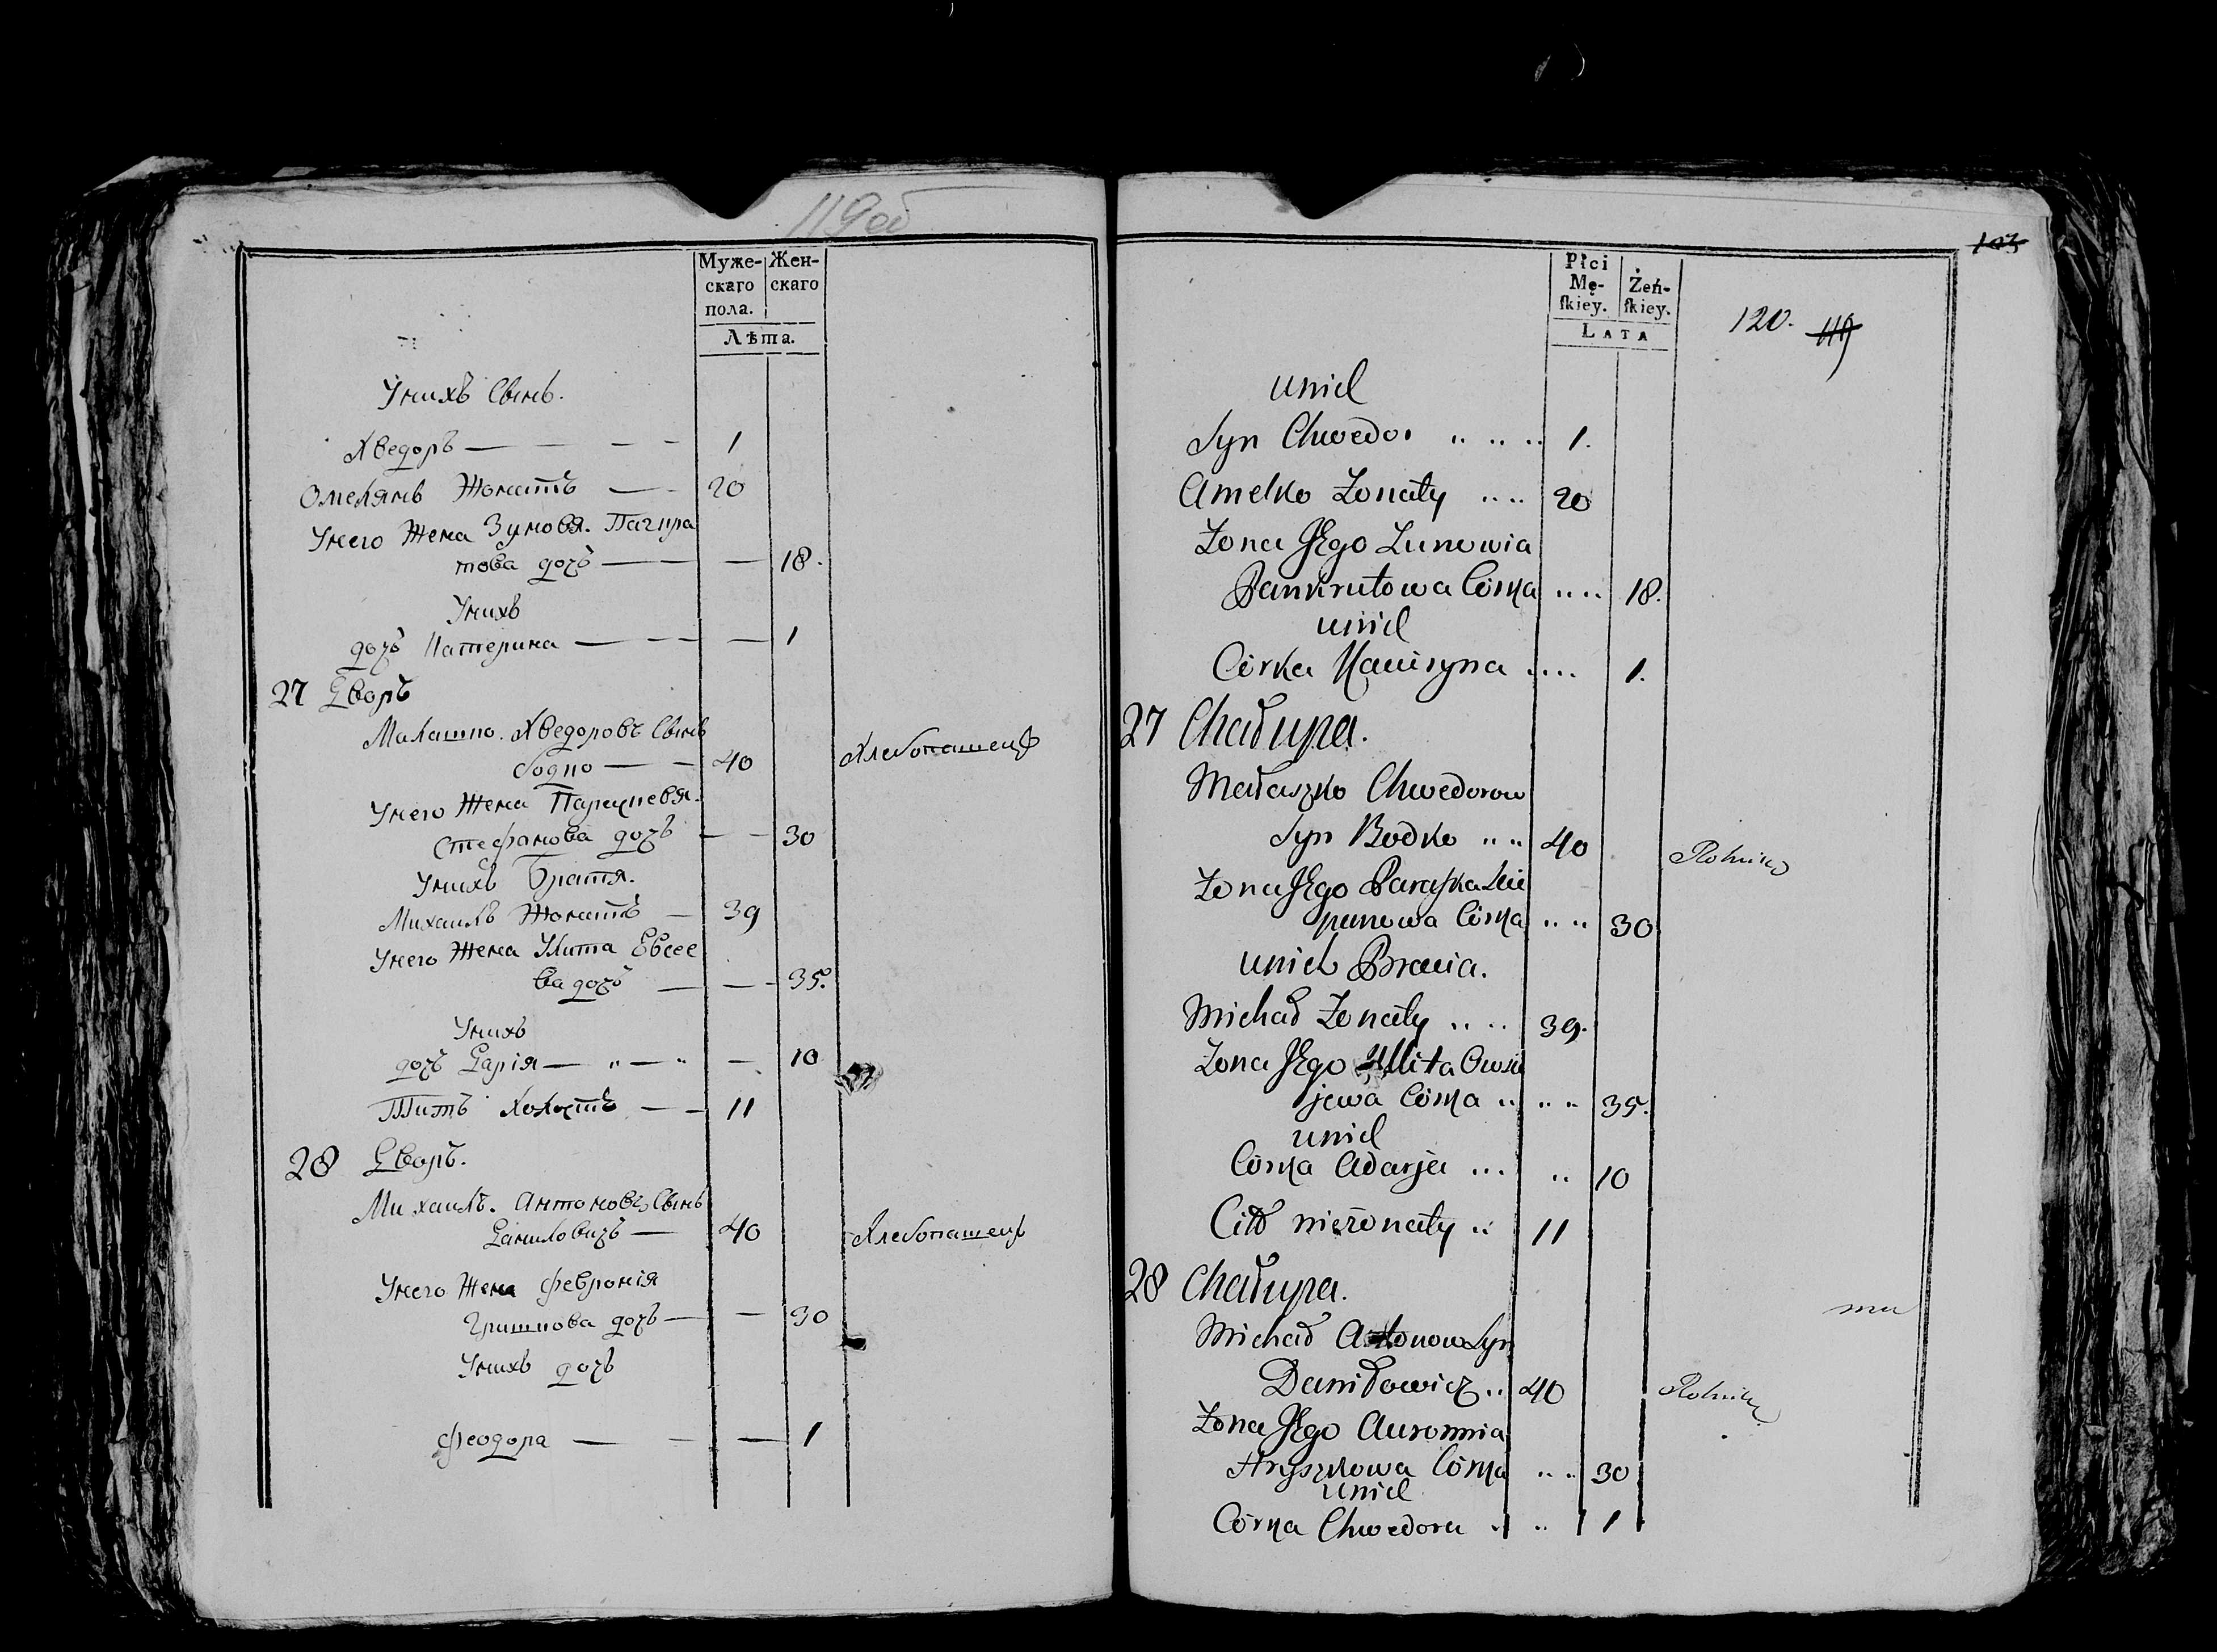 119об
Муже-
скаго
пола.
Жен-
скаго
Лѣта.
Унихъ Сынъ.
Хведоръ — — — — 1
Омелянъ Жонатъ — — 20
Унего Жена Зуновя. Панкра
това дочь — — — 18.
Унихъ
дочь Катерина — — — — 1
27 Дворъ
Малашко. Хведоровъ Сынъ
Бодко — — 40 Хлебопашецъ
Унего Жена Парускевя.
Стефанова дочь — — 30
Унихъ Братя.
Михаилъ Жонатъ — 39
Унего Жена Улита Евсее
ва дочь — — - 35.
Унихъ
дочь Дарія — „ — „ — 10
Титъ Холостъ — — 11
28 Дворъ.
Михаилъ. Антоновъ Сынъ
Даниловичъ — 40 Хлебопашецъ
Унего Жена Февронія
Гришкова дочь — — 30
Унихъ дочь
Феодора — — — 1
103
Płci
Mę-
ſkiey.
Żeń-
ſkiey.
LATA
120. 119
unich
Syn Chwedor .. .. .. 1.
Amelko Żonaty .. .. 20
Żona JEgo Zunowia
Pankrutowa Córka .. .. 18.
unich
Córka Kaciryna .... 1.
27 Chałupa.
Małaszko Chwedorow
Syn Bodko .. .. 40 Rolnik
Żona JEgo Paraſka Scie
panowa Córka .. .. 30
unich Bracia.
Michał Żonaty .. .. 39.
Żona JEgo Ullita Owsie
jewa Córka .. .. .. 35.
unich
Córka Adarja ... .. 10
Cit nieżonaty .. 11
28 Chałupa.
Michał Antonow Syn
Daniłowicz .. 40 Rolnik
Żona JEgo Auromnia
Hryszkowa Córka .. .. 30
unich
Córka Chwedora .. .. 1